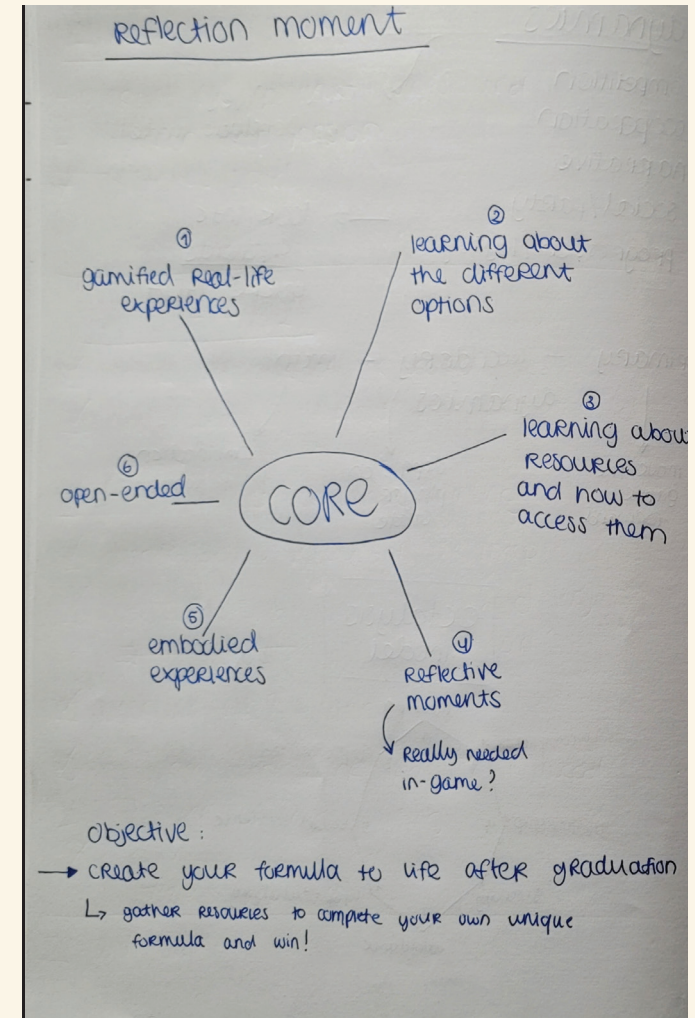 Reflection moment
①
gamified Real-life
experiences
②
learning about
the different
options
③
learning abou
Resources
and how to
access them
⑥
open-ended
CORE
⑤
embodied
experiences
④
Reflective
moments
Really needed
in-game?
Objective:
→ create your formulla to life after graduation
↳ gather resources to complete your own unique
formula and win!